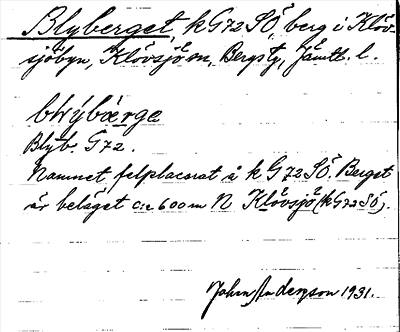 Blyberget, k G72SÖ, berg i Klöv-
sjöbyn, Klövsjö sn, Bergs tg, Jämtl. l.
blɨ́ỳbær̀ge
Blyb. G72.
Namnet felplacerat å k G72SÖ. Berget
är beläget c:a 600 m N Klövsjö (k G72SÖ).
John Anderzon 1931.